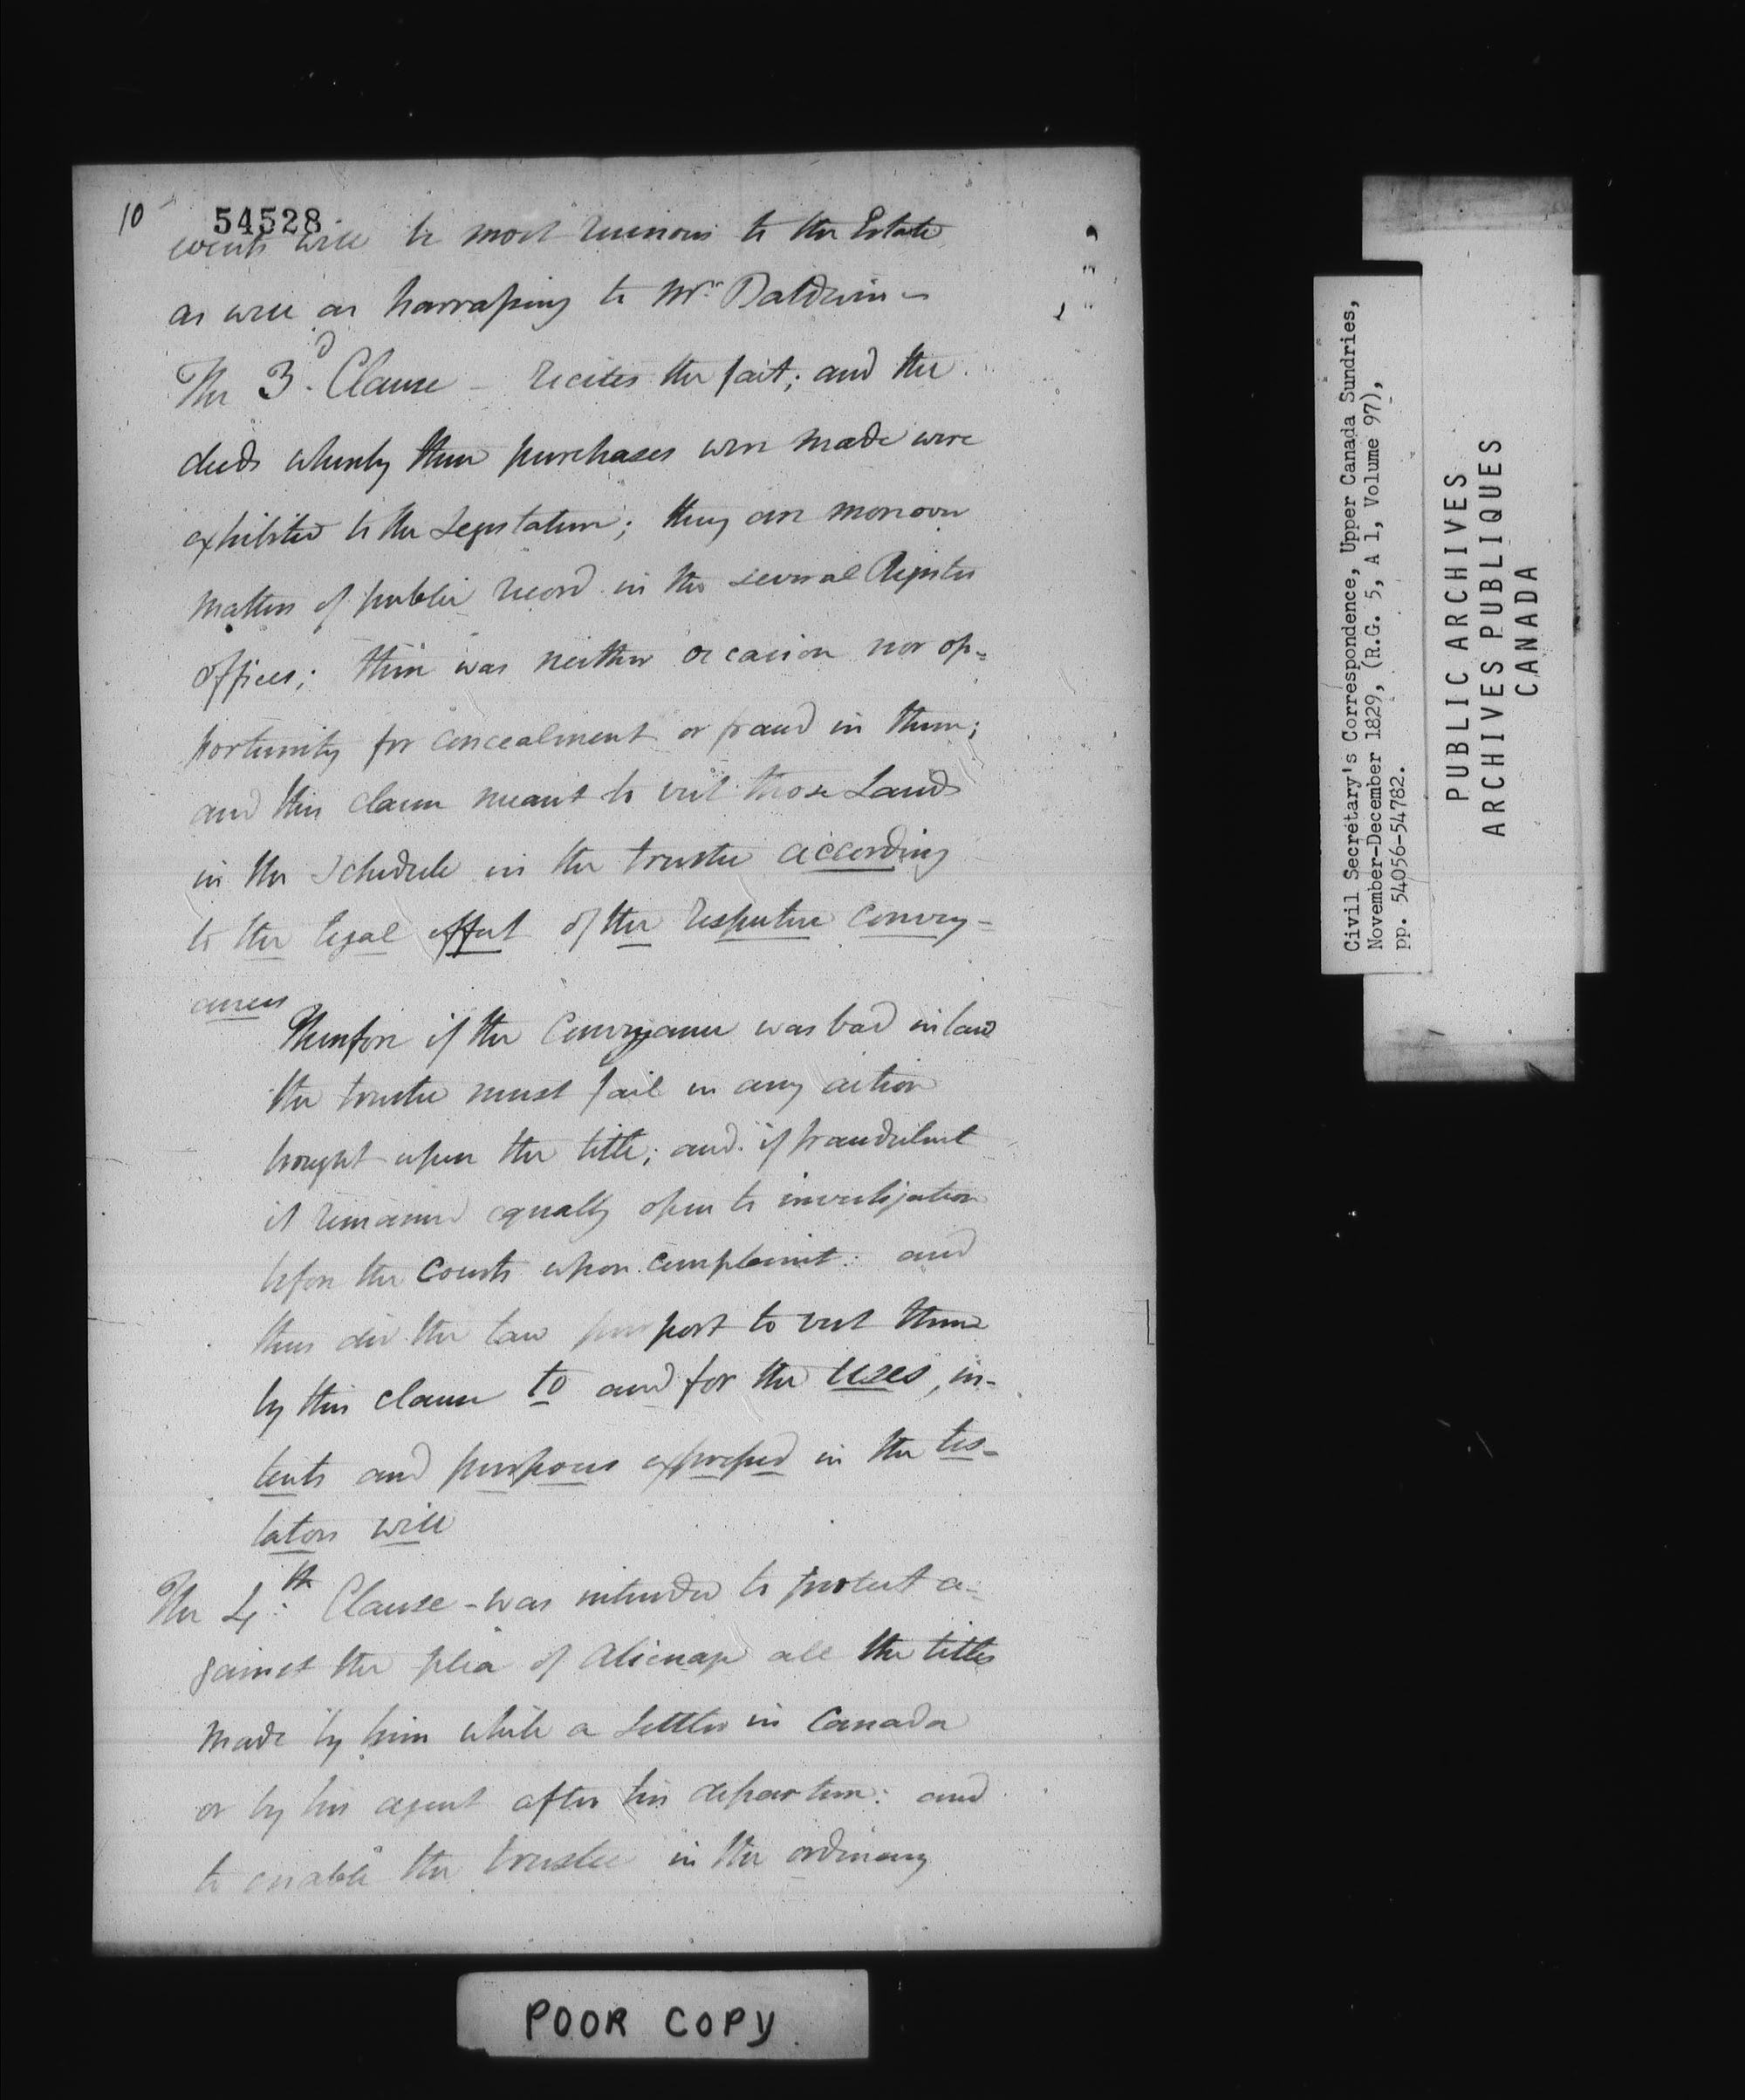 10
54528
events will be most ruinous to the Estate
as well as harrassing to Mr. Baldwin -
The 3d. Clause - recites the fact; and the
deeds whereby these purchases were made were
exhibited to the Legislature; they are moreover
matters of public record in the several Register
offices; there was neither occasion nor op=
portunity for concealment or fraud in them;
and this clause meant to vest those Lands
in the Schedule in the trustee according
to the legal effect of the respective convey=
ances
Therefore if the Conveyance was bad in law
the trustee must fail in any action
brought upon the title; and if fraudulent
it remained equally open to investigation
before the Courts upon complaint: and
thus did the law purport to vest them
by this clause to and for the uses, in-
tents and purposes expressed in the tes-
tators will
The 4th: Clause - was intended to protect a-
gainst the plea of Alienage all the titles
made by him while a Settler in Canada
or by his agent after his departure: and
to enable the trustee in the ordinary
Civil Secretary's Correspondence, Upper Canada Sundries,
November-December 1829, (R.G. 5, A 1, Volume 97),
pp. 54056-54782.
PUBLIC ARCHIVES
ARCHIVES PUBLIQUES
CANADA
POOR COPY